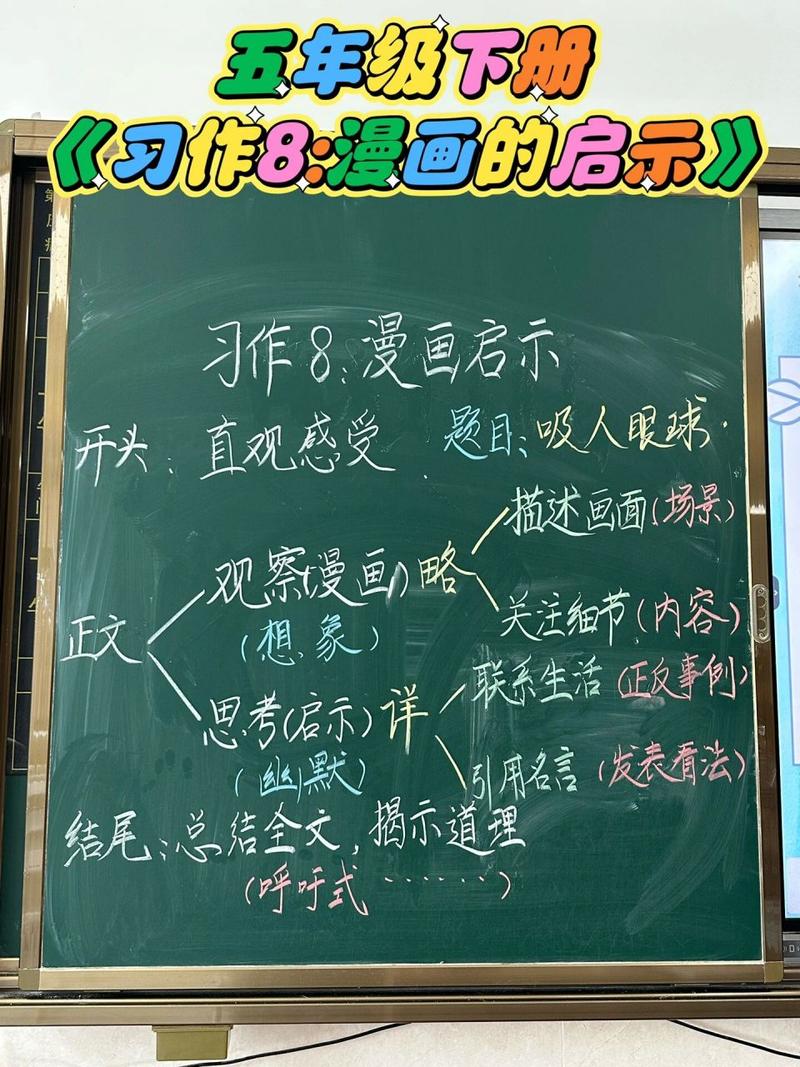 五年级下册
《习作8:漫画的启示》
习作8:漫画启示
开头:直观感受 题目:吸人眼球.
描述画面(场景)
观察(漫画)略
关注细节(内容)
正文 (想象)
联系生活(正反事例)
思考(启示)详
(幽默)
引用名言(发表看法)
结尾:总结全文,揭示道理
(呼吁式········)